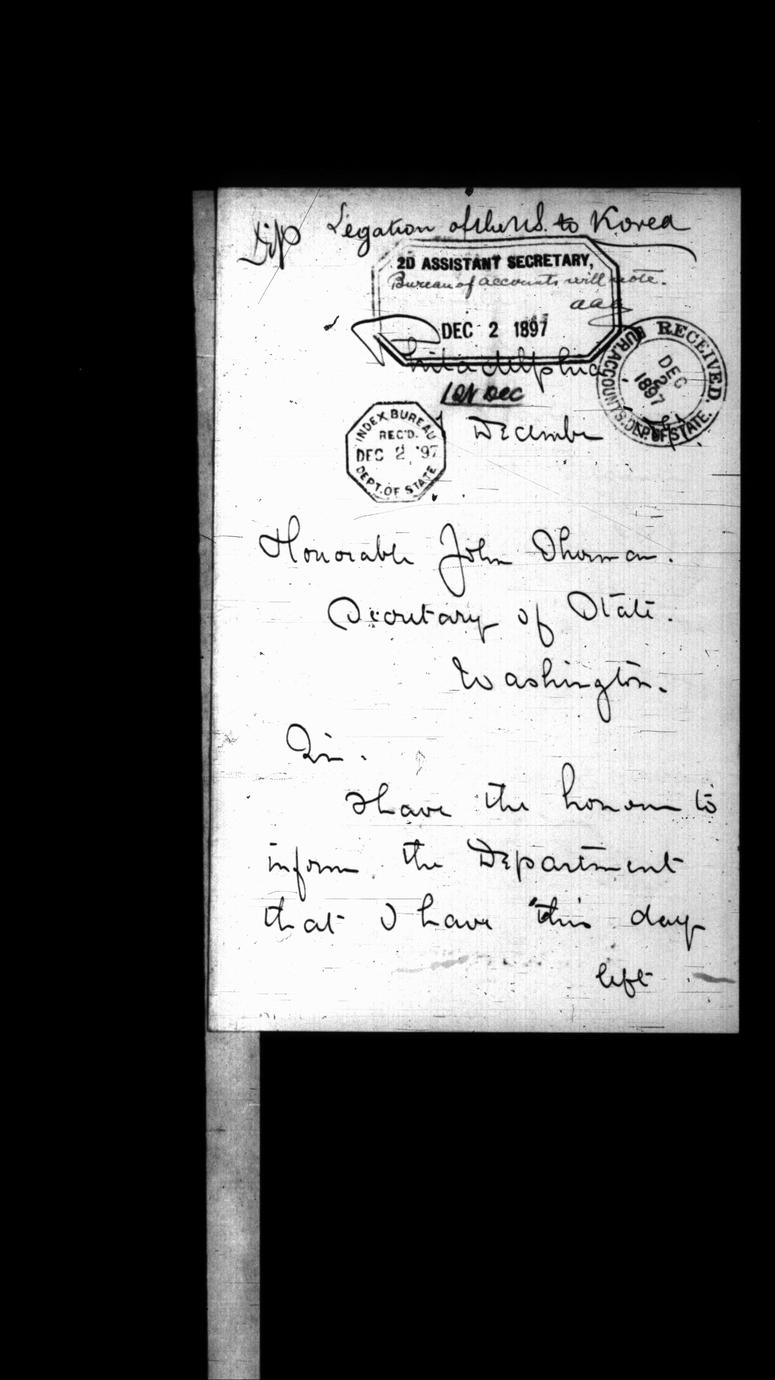 Dip Legation of the U.S. to Korea
2D ASSISTANT SECRETARY,
Bureau of accounts will note.
aaa
DEC 2 1897
Philadelphia
RECEIVED.
DEC 2 1897
BUR. ACCOUNTS, DEP. OF STATE.
1 Dec
1 December
INDEX BUREAU
REC'D.
DEC 2 '97
DEPT. OF STATE
Honorable John Sherman.
Secretary of State.
Washington.
Sir.
I have the honour to
inform the Department
that I have this day
left